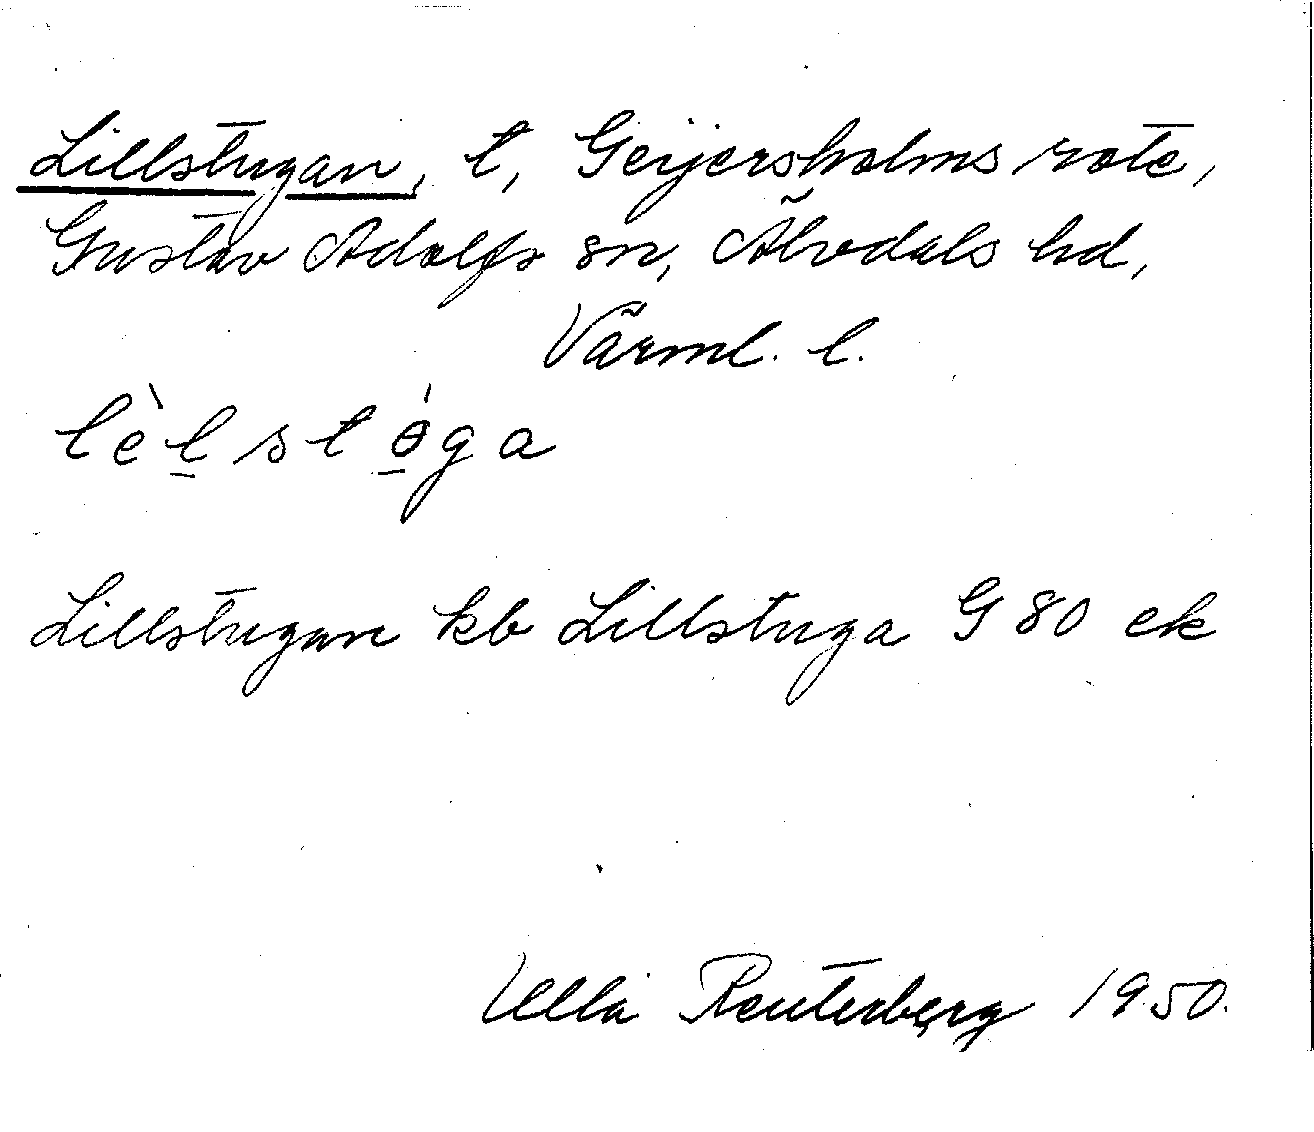 Lillstugan, t, Geijersholms rote,
Gustav Adolfs sn, Älvdals hd,
Värml. l.
lèl̠stɵ̠́ga
Lillstugan kb Lillstuga G 80 ek
Ulla Reuterberg 1950.